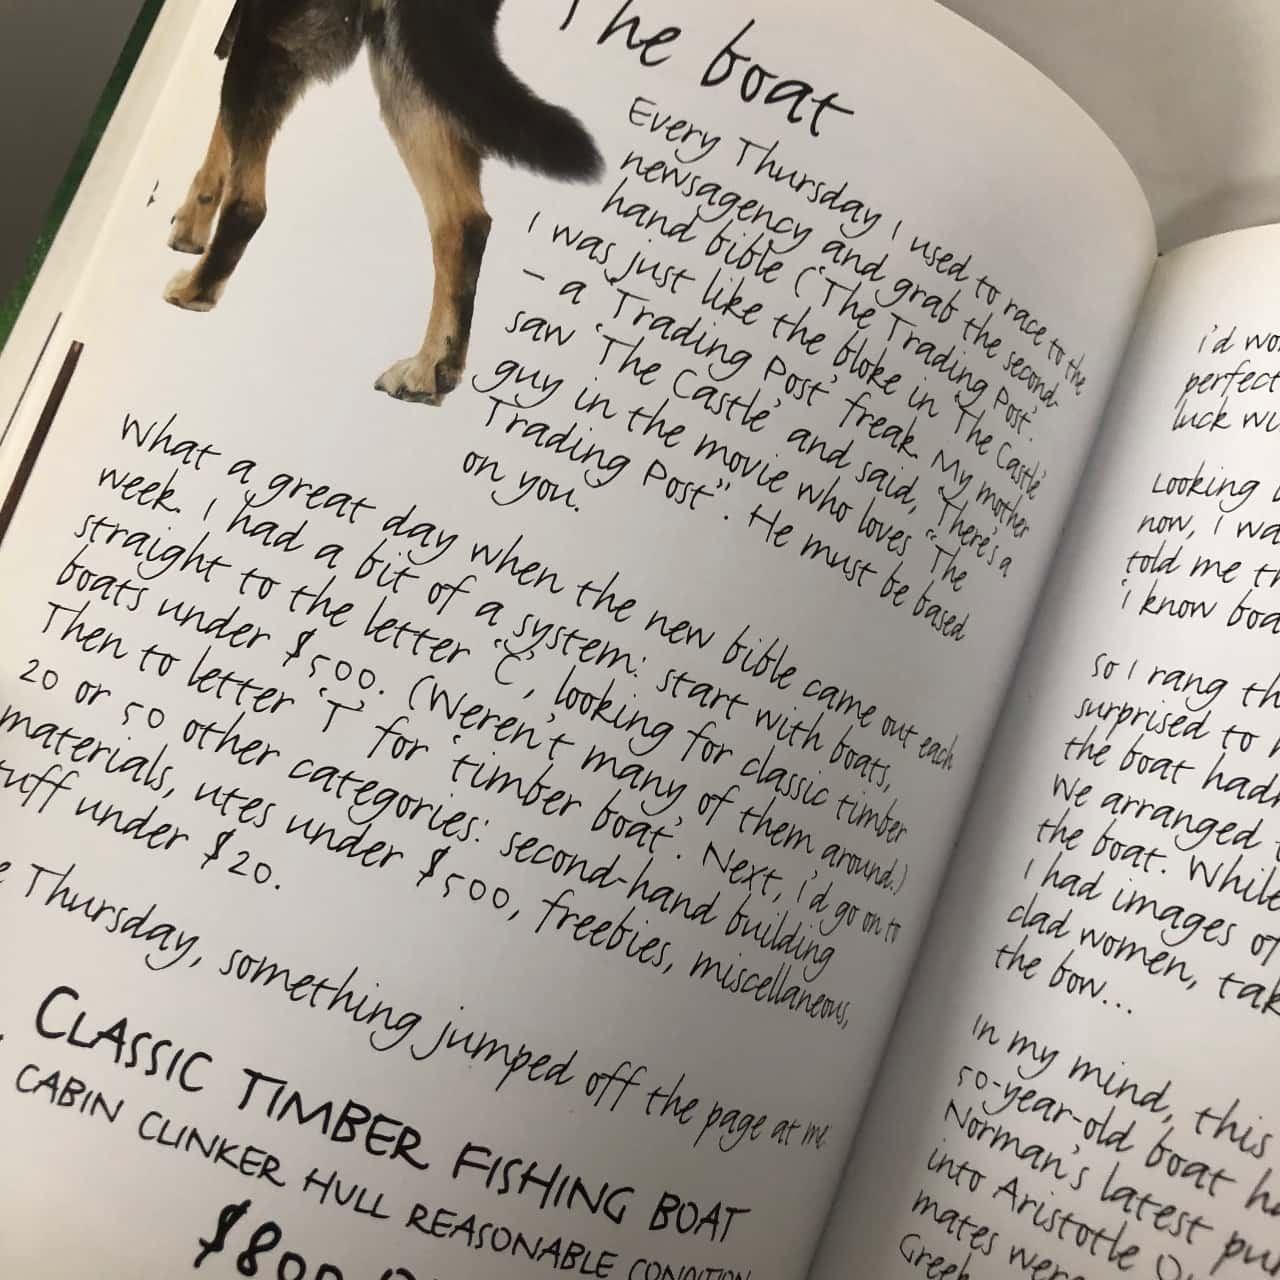 The boat
Every Thursday I used to race to the
newsagency and grab the second-
hand bible ('The Trading Post'.
I was just like the bloke in 'The Castle'
– a 'Trading Post' freak. My mother
saw 'The Castle' and said, 'There's a
guy in the movie who loves "The
Trading Post". He must be based
on you.
What a great day when the new bible came out each
week. I had a bit of a system: start with boats,
straight to the letter 'C', looking for classic timber
boats under $500. (Weren't many of them around.)
Then to letter 'T' for 'timber boat'. Next, i'd go on to
20 or 50 other categories: second-hand building
materials, utes under $500, freebies, miscellaneous,
stuff under $20.
Thursday, something jumped off the page at me.
CLASSIC TIMBER FISHING BOAT
CABIN CLINKER HULL REASONABLE CONDITION
$800
i'd
perfect
luck
Looking
now, I
told me
i know
So I rang
surprised to
the boat
We arranged
the boat. While
I had images of
clad women,
the bow...
In my mind, this
50-year-old boat
Norman's latest
into Aristotle
mates were
Greek